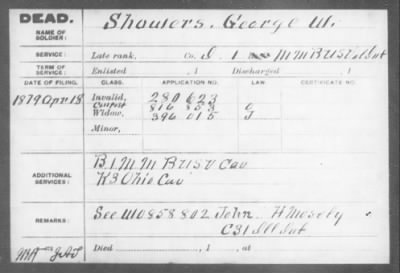 DEAD.
NAME OF SOLDIER:
Showers, George W.
SERVICE:
Late rank, Co. I, 1 M M B US Vol Inf
TERM OF SERVICE:
Enlisted , 1 Discharged , 1
DATE OF FILING. CLASS. APPLICATION NO. LAW. CERTIFICATE NO.
1879 Apr 18 Invalid, 280 623
816 853 G
Widow, 396 015 J
Minor,
ADDITIONAL SERVICES:
B 1 M M B US V Cav
K 3 Ohio Cav
REMARKS:
See WO 858 802 John H Mosely
C 31 Ill Inf
Died , 1 , at